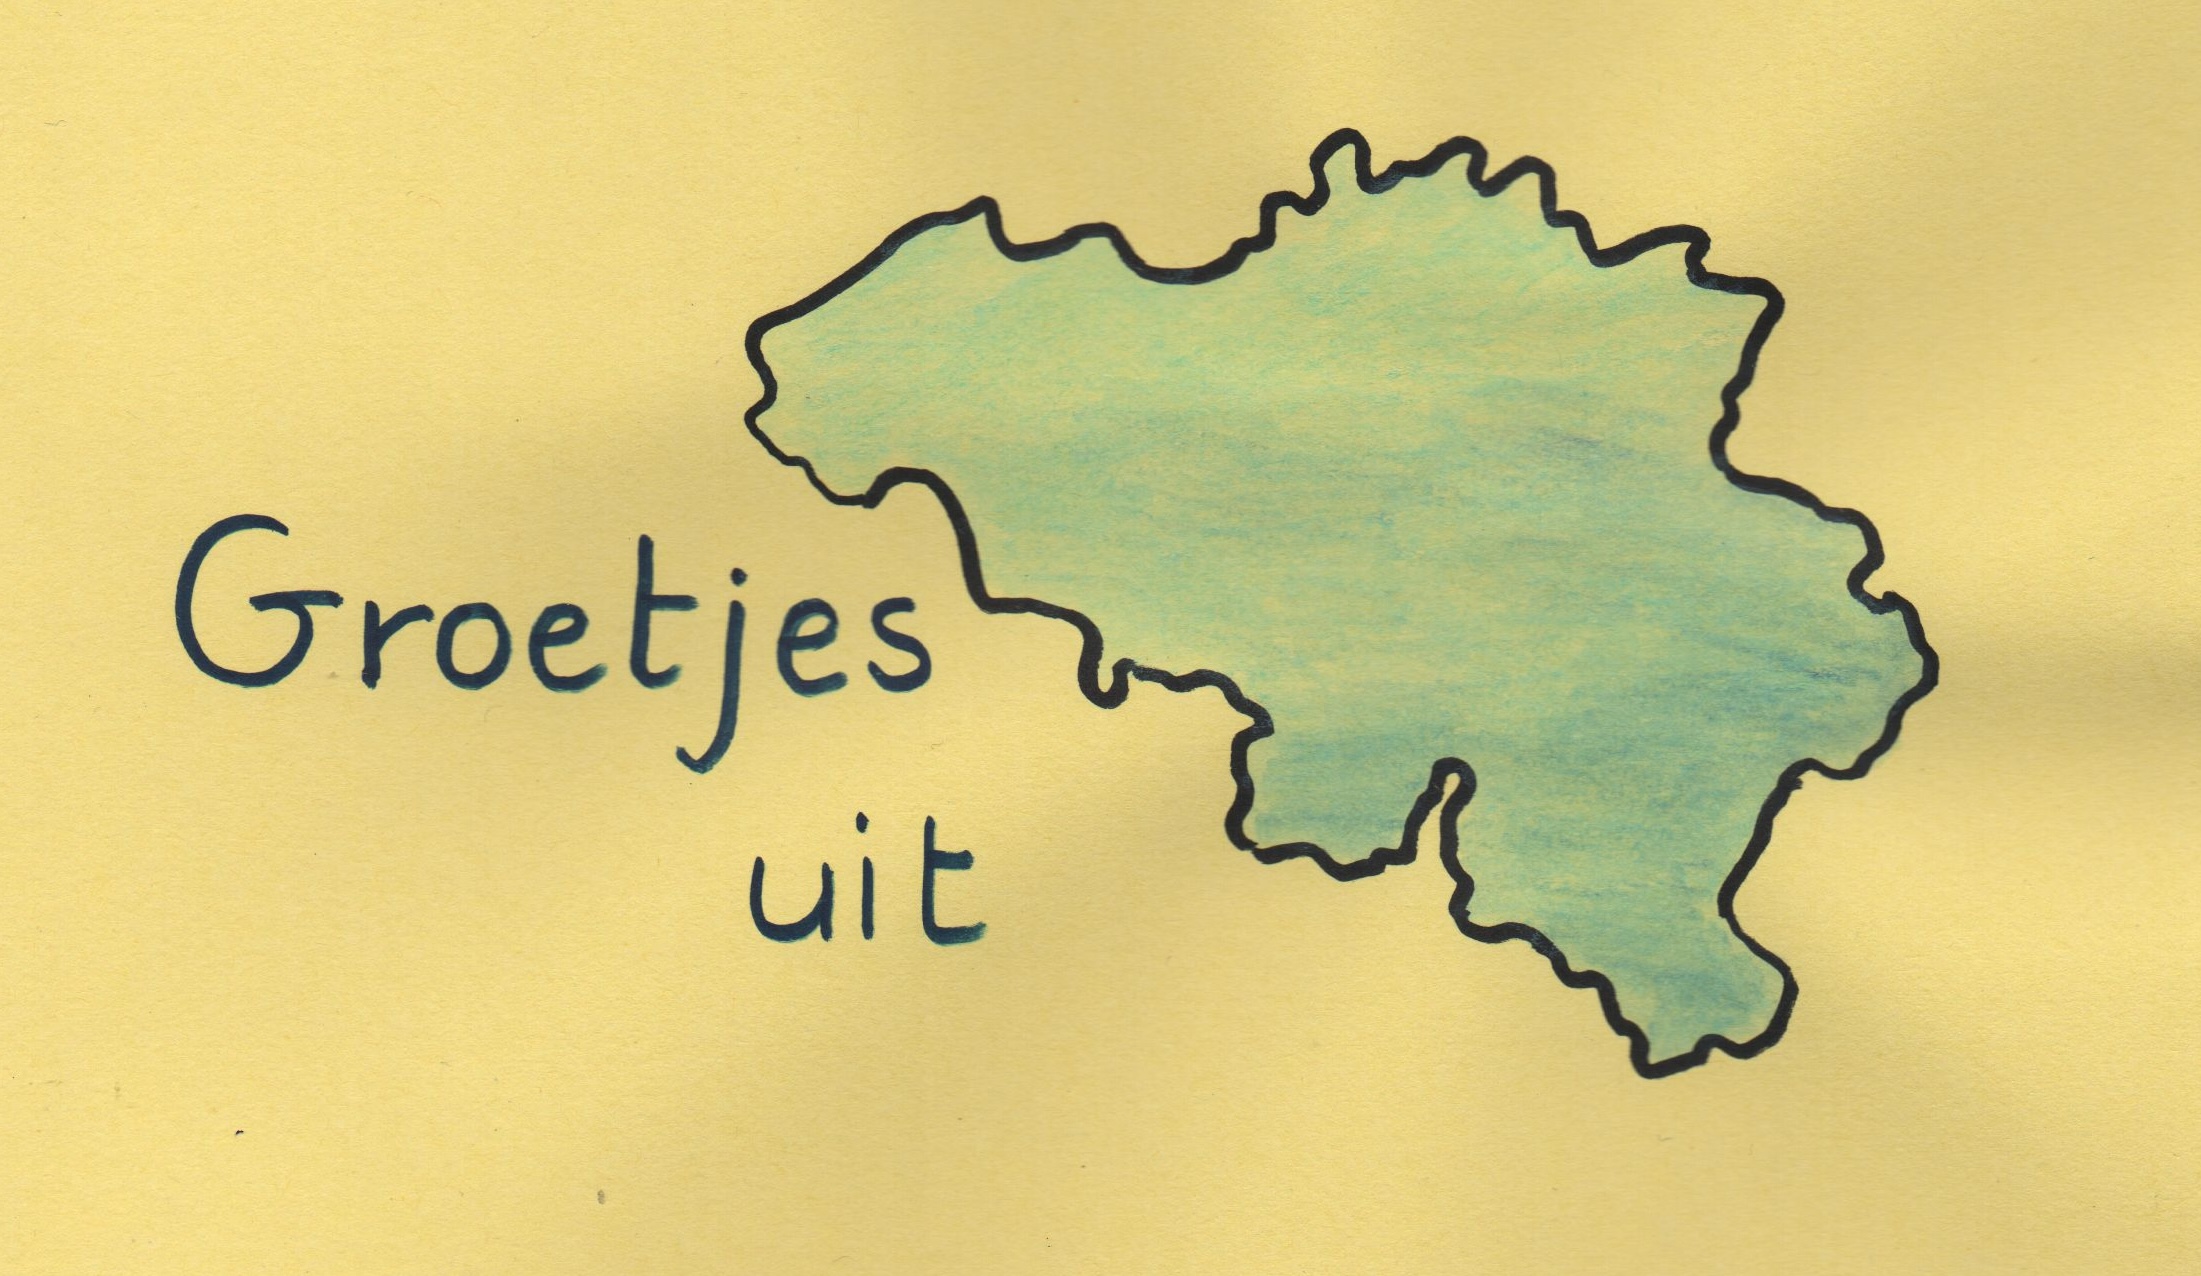 Groetjes
uit